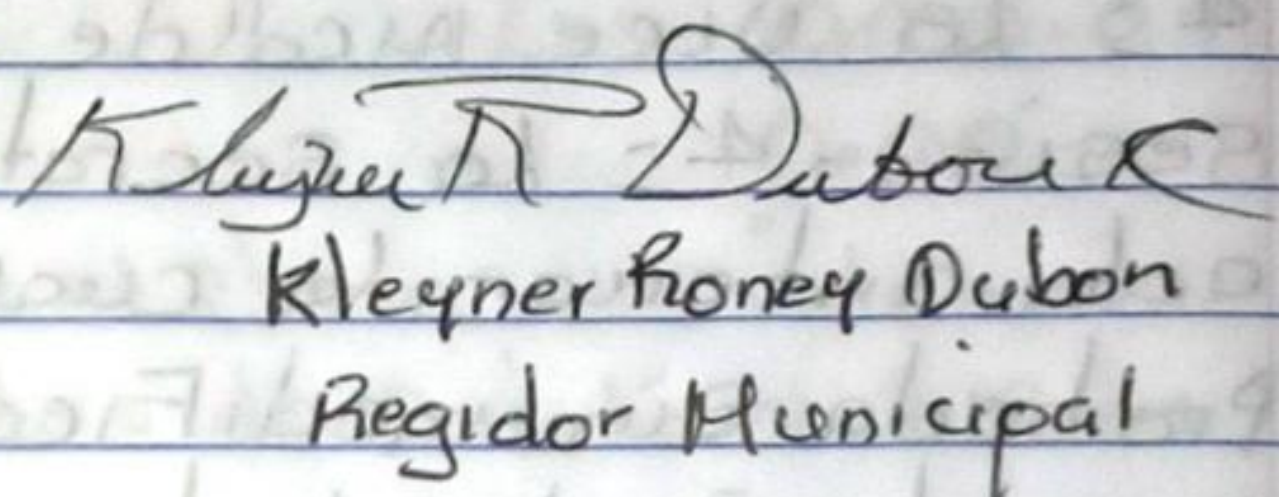 Kleyner R Dubon R
Kleyner Roney Dubon
Regidor Municipal